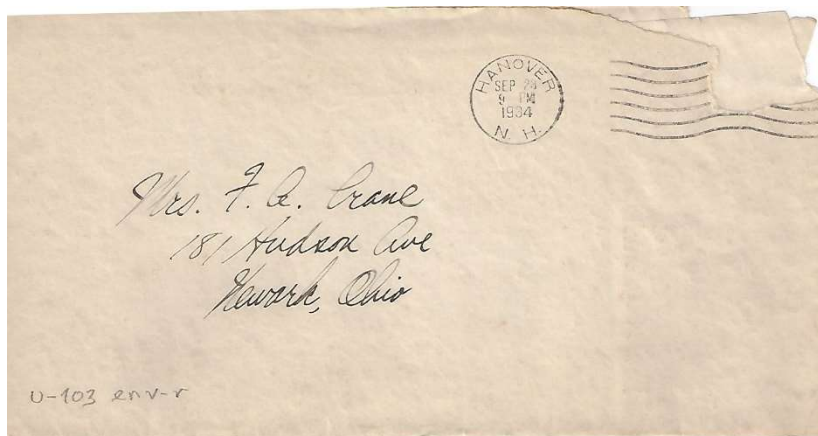 HANOVER
SEP 24
9 PM
1934
N. H.
Mrs. F. A. Crane
181 Hudson Ave
Newark, Ohio
U-103 env-r